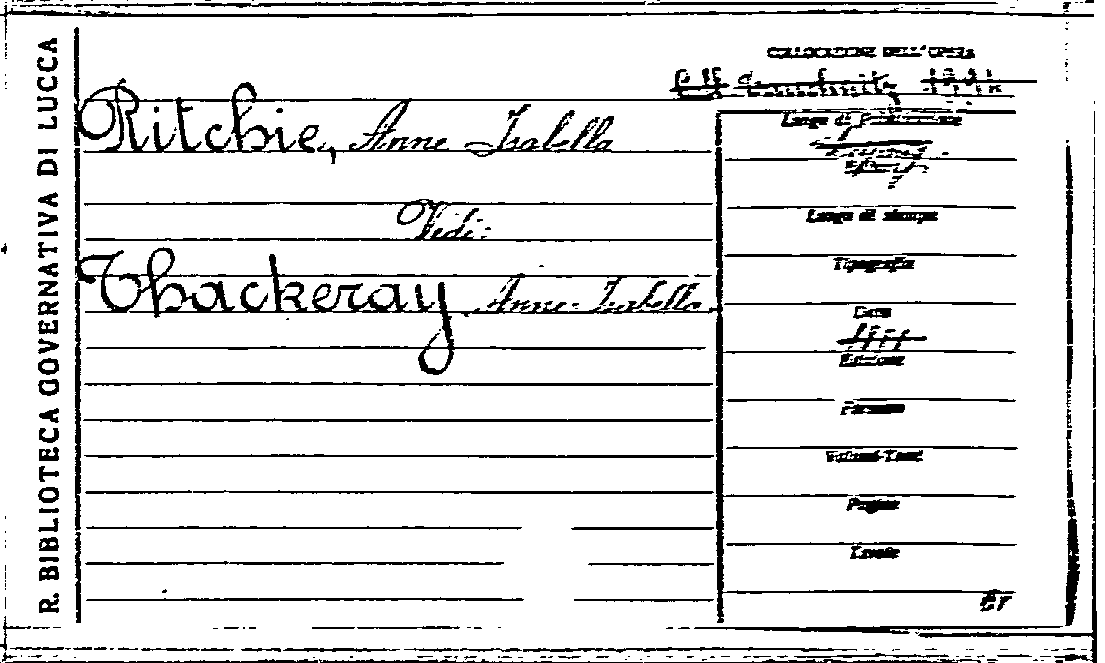 R. BIBLIOTECA GOVERNATIVA DI LUCCA
COLLOCAZIONE DELL'OPERA
Ritchie, Anne Isabella
Vedi:
Thackeray Anne-Isabella
Luogo di
Luogo di stampa
Tipografia
Data
Edizione
Formato
Volumi-Tomi
Pagine
Tavole